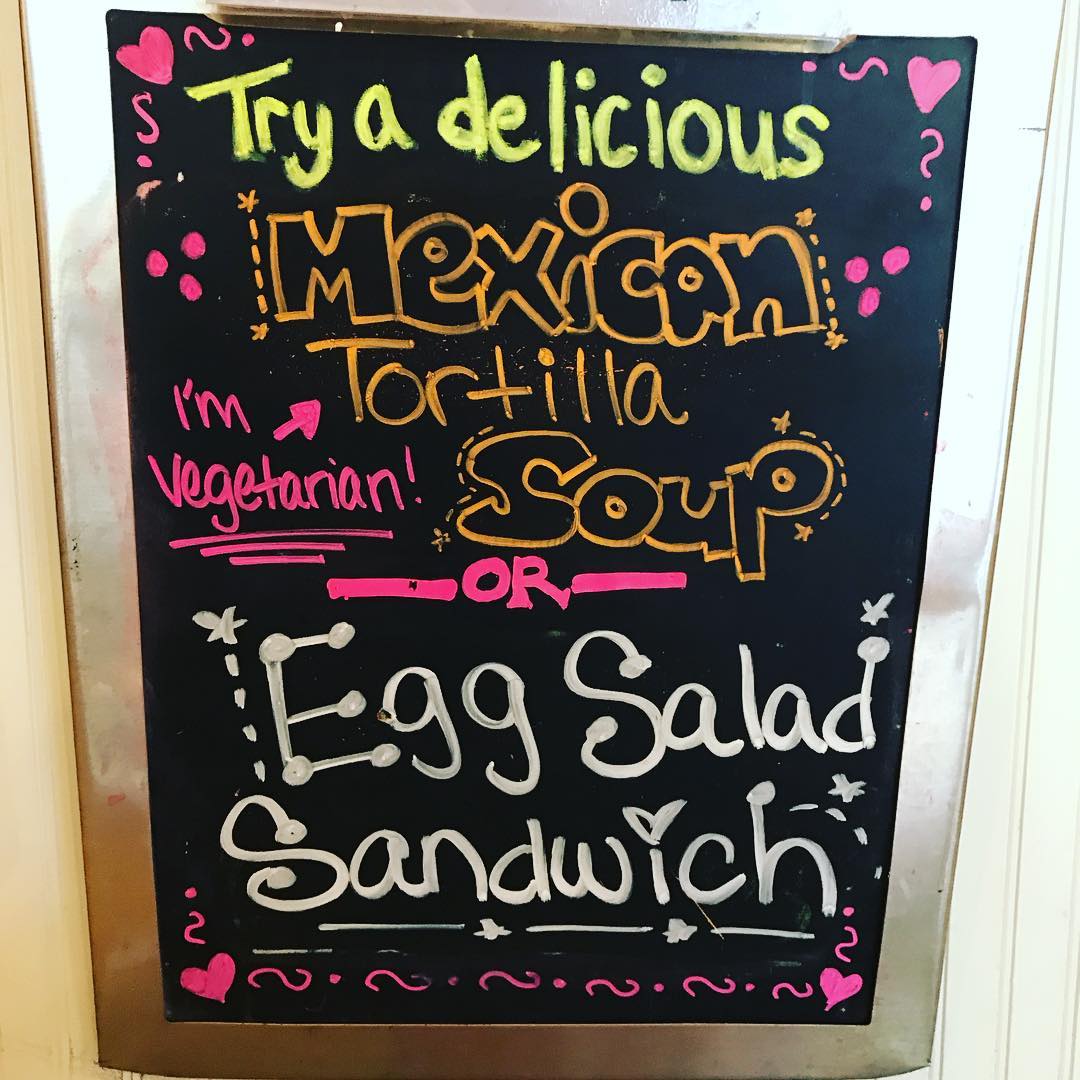 Try a delicious
Mexican
Tortilla
I'm
vegetarian!
Soup
OR
Egg Salad
Sandwich